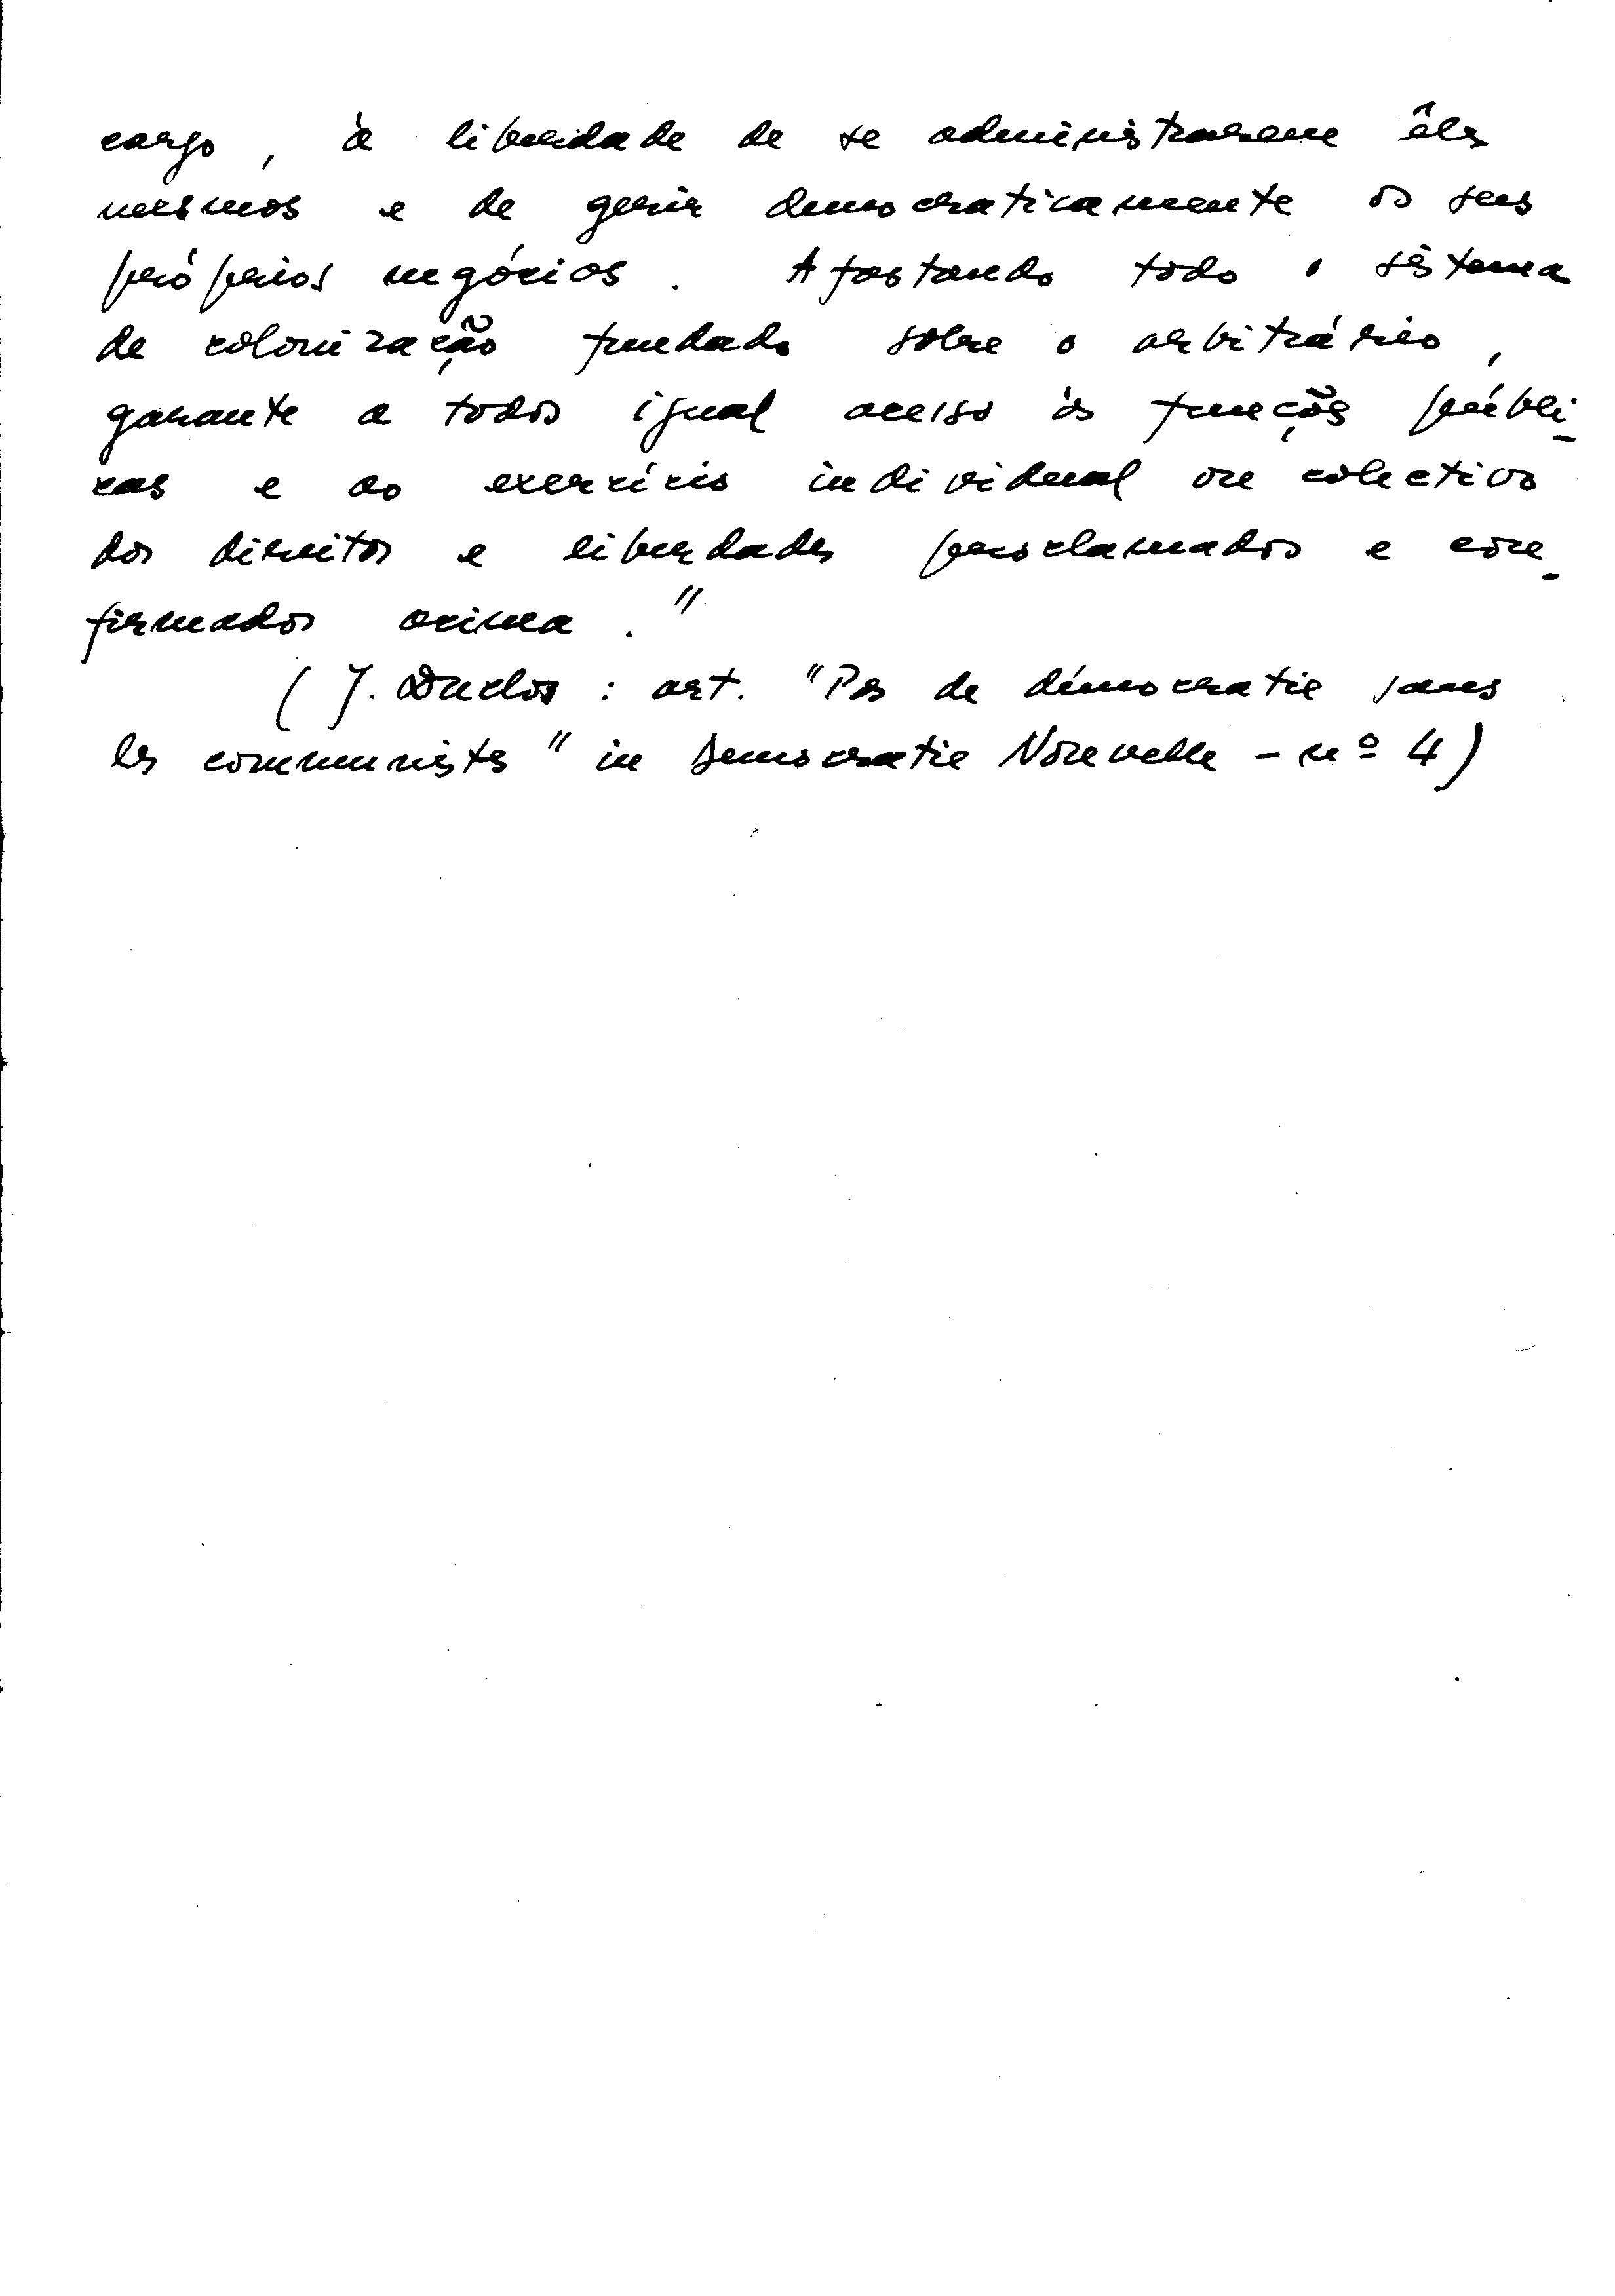 cargo, à liberdade de se administrarem êles
mesmos e de gerir democraticamente os seus
próprios negócios. Afastando todo o sistema
de colonização fundado sobre o arbitrário,
garante a todos igual acesso às funções públi-
cas e ao exercício individual ou colectivo
dos direitos e liberdades proclamados e con-
firmados acima."
(J. Duclos: art. "Pas de démocratie sans
les communistes" in Democratie Nouvelle - nº 4)